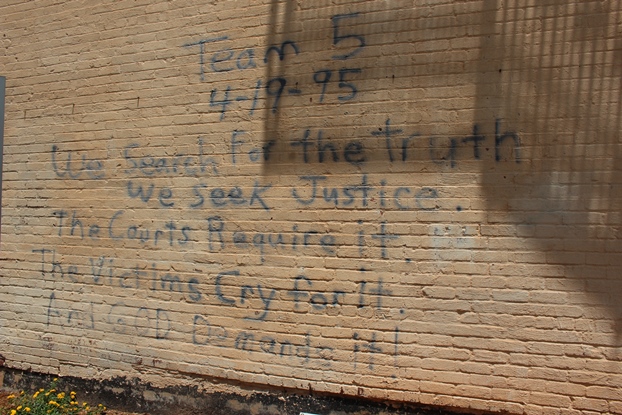 Team 5
4-19-95
We Search For the truth
We Seek Justice.
The Courts Require it.
The Victims Cry for it.
And GOD Demands it!